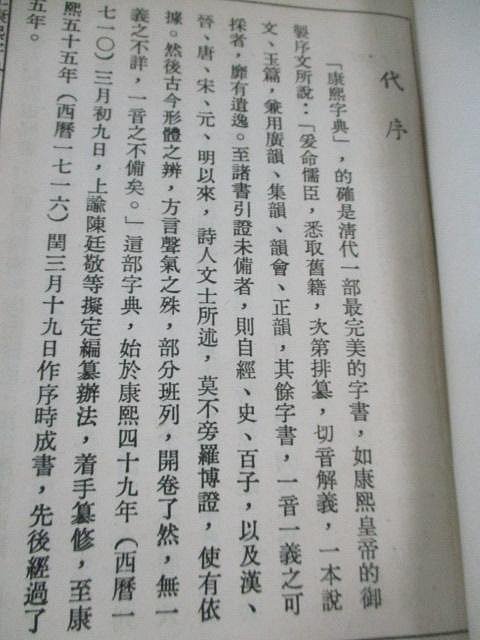 代序
「康熙字典」，的確是清代一部最完美的字書，如康熙皇帝的御
製序文所說：「爰命儒臣，悉取舊籍，次第排纂，切音解義，一本說
文、玉篇，兼用廣韻、集韻、韻會、正韻，其餘字書，一音一義之可
採者，靡有遺逸。至諸書引證未備者，則自經、史、百子，以及漢、
晉、唐、宋、元、明以來，詩人文士所述，莫不旁羅博證，使有依
據。然後古今形體之辨，方言聲氣之殊，部分班列，開卷了然，無一
義之不詳，一音之不備矣。」這部字典，始於康熙四十九年（西曆一
七一〇）三月初九日，上諭陳廷敬等擬定編纂辦法，着手纂修，至康
熙五十五年（西曆一七一六）閏三月十九日作序時成書，先後經過了
五年。